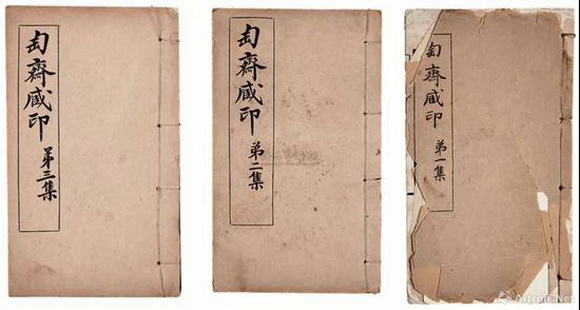 匋齋臧印 第三集
匋齋臧印 第二集
匋齋臧印 第一集
Artron.Net